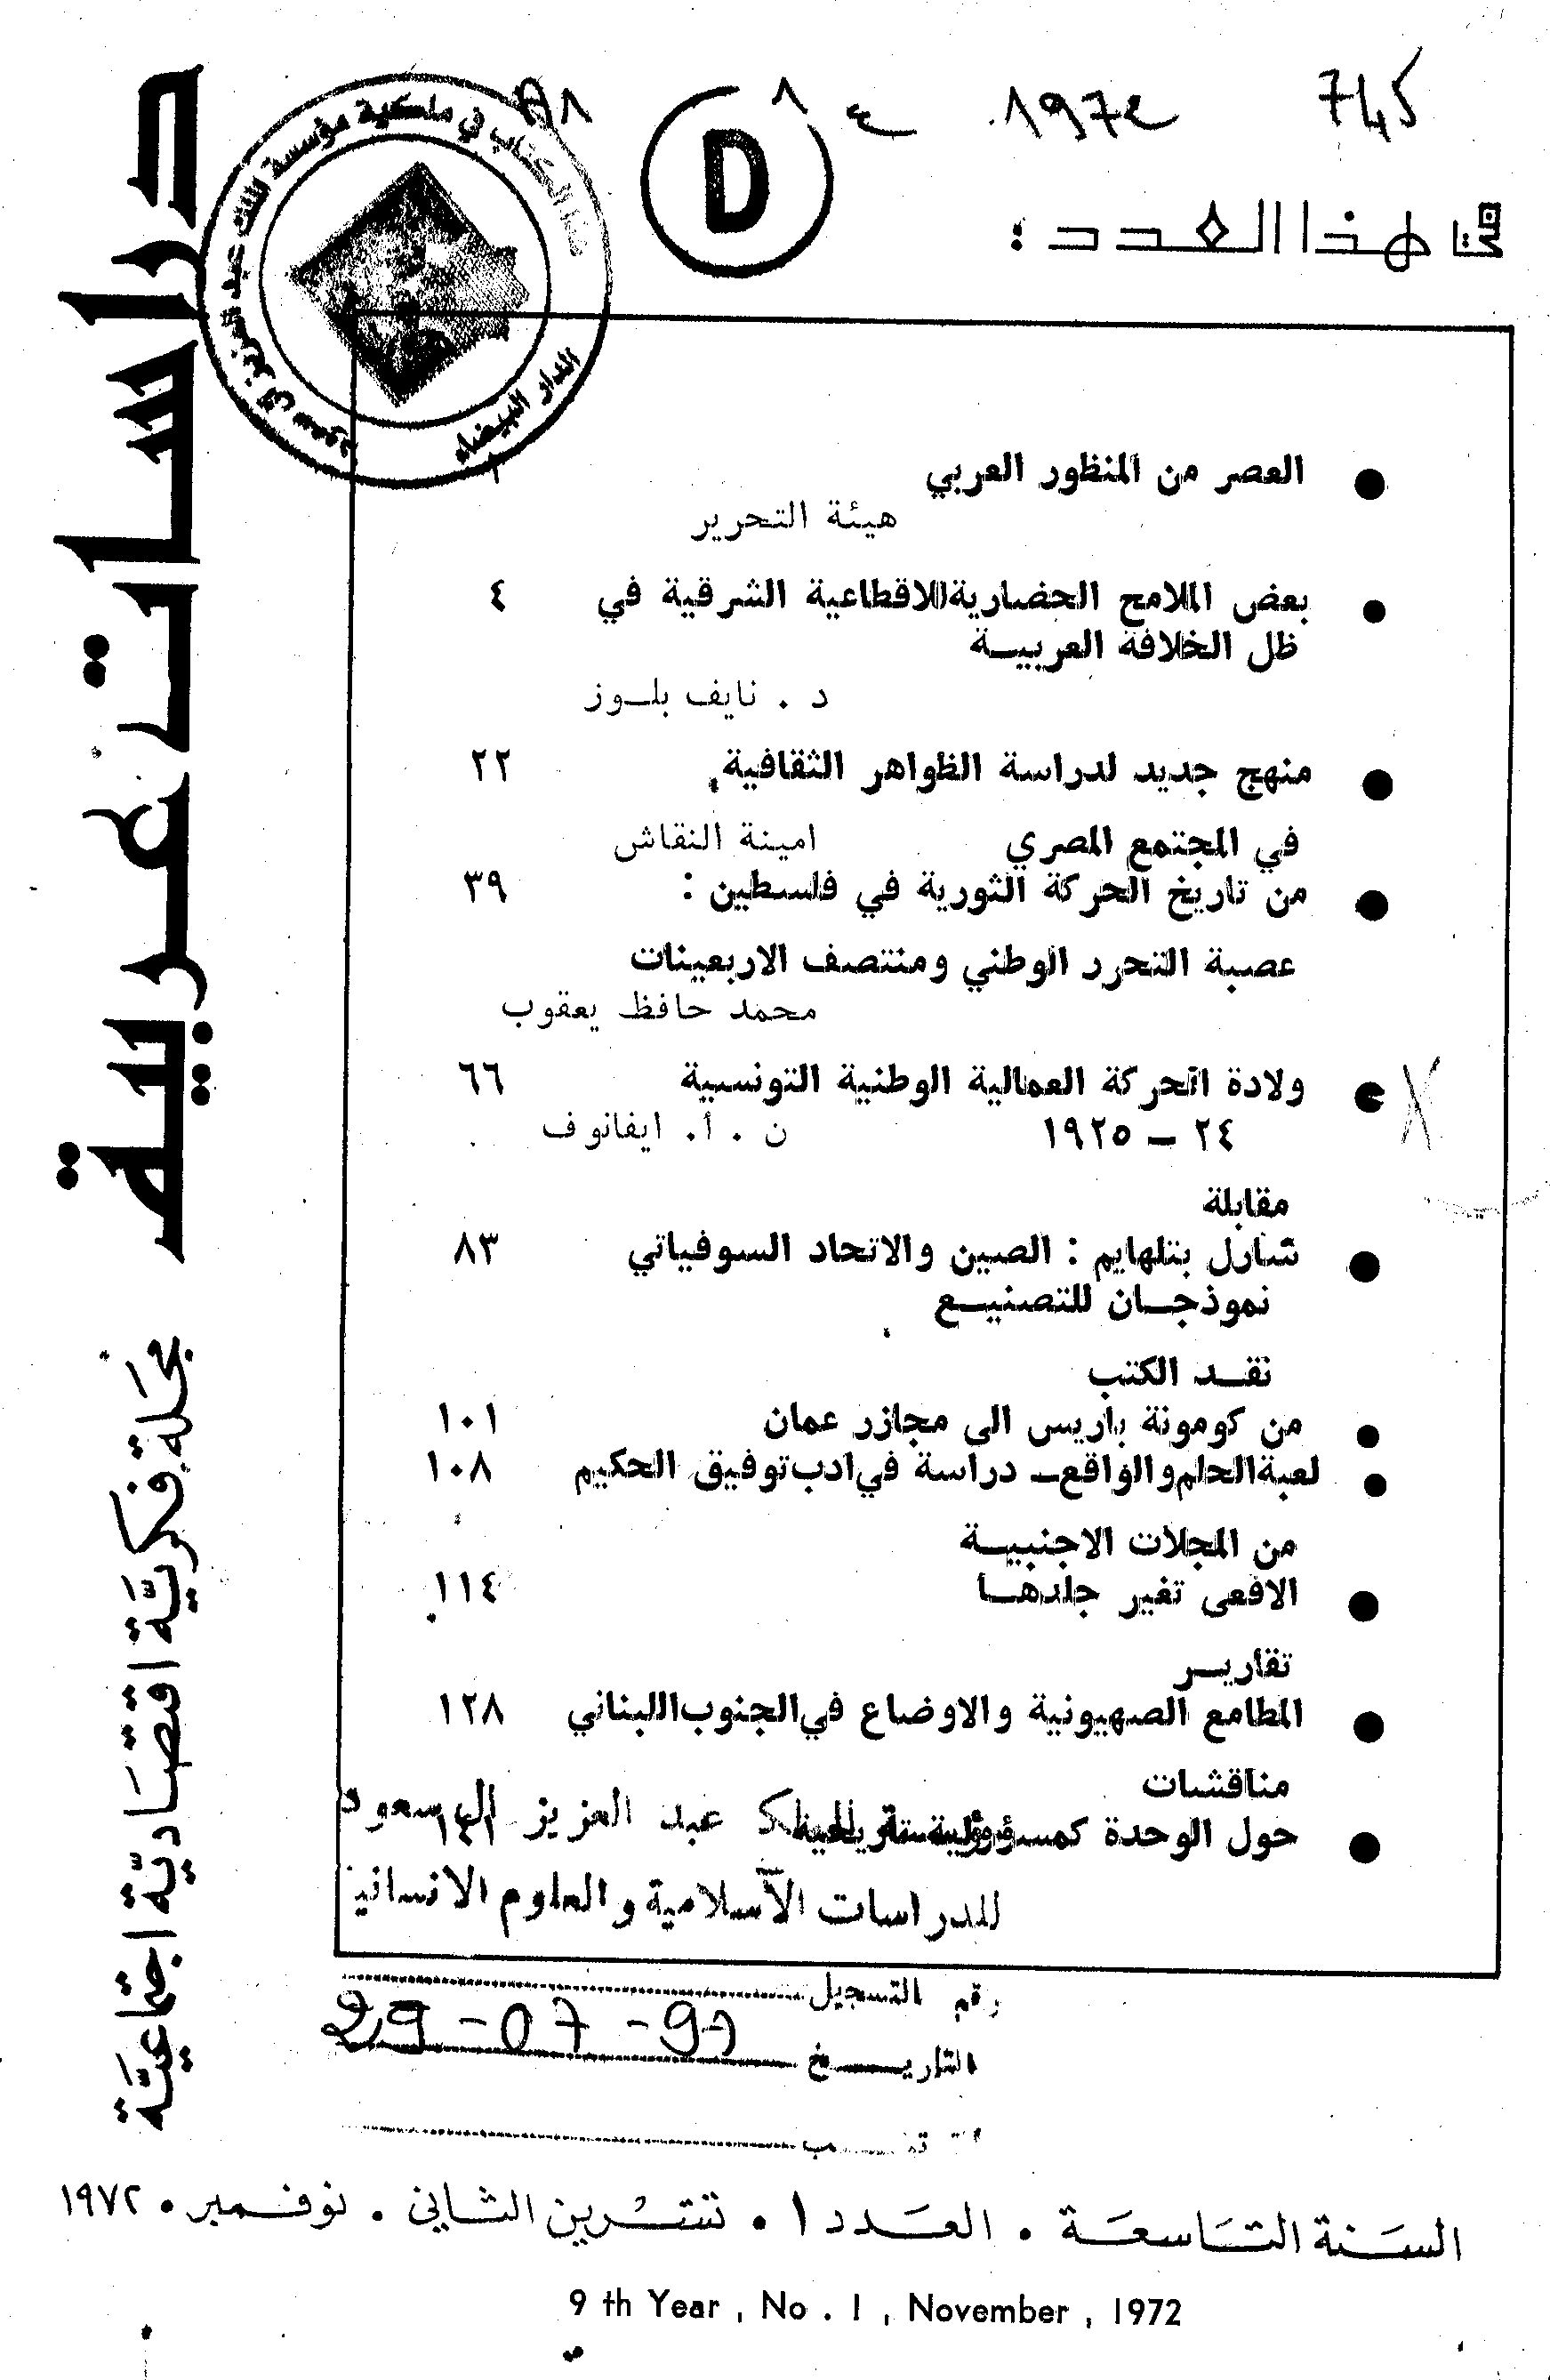 745
1972
D
في هذا العدد :
هذا الكتاب في ملكية مؤسسة الملك عبد العزيز آل سعود
الدار البيضاء
العصر من المنظور العربي ١
هيئة التحرير
بعض الملامح الحضارية للاقطاعية الشرقية في ٤
ظل الخلافة العربيــة
د . نايف بلــوز
منهج جديد لدراسة الظواهر الثقافية ٢٢
في المجتمع المصري امينة النقاش
من تاريخ الحركة الثورية في فلسطين : ٣٩
عصبة التحرر الوطني ومنتصف الاربعينات
محمد حافظ يعقوب
ولادة الحركة العمالية الوطنية التونسية ٦٦
٢٤ – ١٩٢٥ ن . أ. ايفانوف
مقابلة
شارل بتلهايم : الصين والاتحاد السوفياتي ٨٣
نموذجــان للتصنيــع
نقــد الكتب
من كومونة باريس الى مجازر عمان ١٠١
لعبة الحلم والواقع ــ دراسة في ادب توفيق الحكيم ١٠٨
من المجلات الاجنبيــة
الافعى تغير جلدهــا ١١٤
تقاريــر
المطامع الصهيونية والاوضاع في الجنوب اللبناني ١٢٨
مناقشات
حول الوحدة كمسؤولية تاريخية
عبد العزيز آل سعود
للدراسات الاسلامية والعلوم الانسانية
رقم التسجيل
التاريــــخ 29-07-91
دراسات عربية
مجلة فكريّة اقتصاديّة اجتماعيّة
السنة التاسعة . العدد ١ . تشرين الثاني . نوفمبر . ١٩٧٢
9 th Year , No . 1 , November , 1972